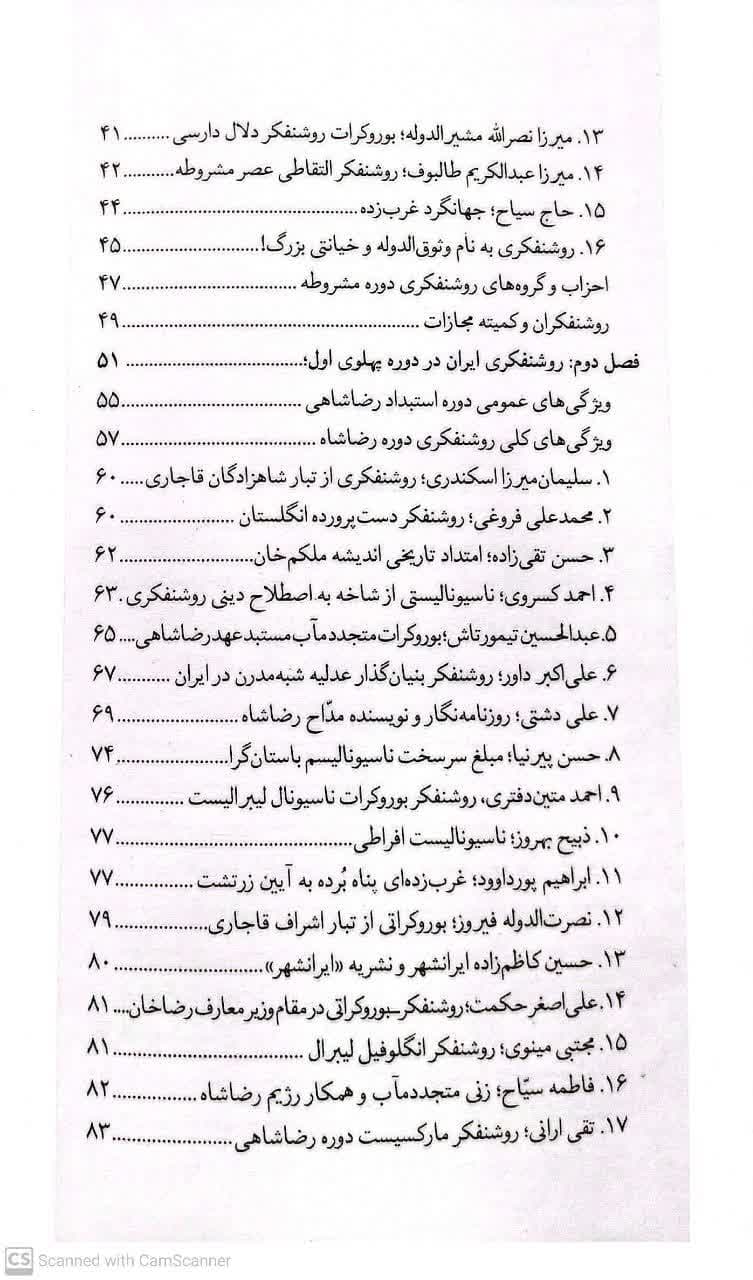 ۱۳. میرزا نصرالله مشیرالدوله؛ بوروکرات روشنفکر دلال دارسی ..........۴۱
۱۴. میرزا عبدالکریم طالبوف؛ روشنفکر التقاطی عصر مشروطه...........۴۲
۱۵. حاج سیاح؛ جهانگرد غرب‌زده..................................................۴۴
۱۶. روشنفکری به نام وثوق‌الدوله و خیانتی بزرگ!.............................۴۵
احزاب و گروه‌های روشنفکری دوره مشروطه ..................................۴۷
روشنفکران و کمیته مجازات .......................................................۴۹
فصل دوم: روشنفکری ایران در دوره پهلوی اول؛.................................... ۵۱
ویژگی‌های عمومی دوره استبداد رضاشاهی .....................................۵۵
ویژگی‌های کلی روشنفکری دوره رضاشاه .......................................۵۷
۱. سلیمان‌میرزا اسکندری؛ روشنفکری از تبار شاهزادگان قاجاری.....۶۰
۲. محمدعلی فروغی؛ روشنفکر دست‌پرورده انگلستان .......................۶۰
۳. حسن تقی‌زاده؛ امتداد تاریخی اندیشه ملکم‌خان...........................۶۲
۴. احمد کسروی؛ ناسیونالیستی از شاخه به اصطلاح دینی روشنفکری .۶۳
۵.عبدالحسین تیمورتاش؛بوروکرات متجددمآب مستبد عهد رضاشاهی....۶۵
۶. علی‌اکبر داور؛ روشنفکر بنیان‌گذار عدلیه شبه‌مدرن در ایران ...........۶۷
۷. علی دشتی؛ روزنامه‌نگار و نویسنده مدّاح رضاشاه .........................۶۹
۸. حسن پیرنیا؛ مبلغ سرسخت ناسیونالیسم باستان‌گرا.......................۷۴
۹. احمد متین‌دفتری، روشنفکر بوروکرات ناسیونال لیبرالیست ..............۷۶
۱۰. ذبیح بهروز؛ ناسیونالیست افراطی.................................................۷۷
۱۱. ابراهیم پورداوود؛ غرب‌زده‌ای پناه بُرده به آیین زرتشت ................۷۷
۱۲. نصرت‌الدوله فیروز؛ بوروکراتی از تبار اشراف قاجاری...................۷۹
۱۳. حسین کاظم‌زاده ایرانشهر و نشریه «ایرانشهر»..............................۸۰
۱۴.علی‌اصغر حکمت؛ روشنفکر‌ـ‌بوروکراتی در مقام وزیر معارف رضاخان....۸۱
۱۵. مجتبی مینوی؛ روشنفکر انگلوفیل لیبرال .......................................۸۱
۱۶. فاطمه سیّاح؛ زنی متجددمآب و همکار رژیم رضاشاه .................۸۲
۱۷. تقی ارانی؛ روشنفکر مارکسیست دوره رضاشاهی.........................۸۳
CS Scanned with CamScanner